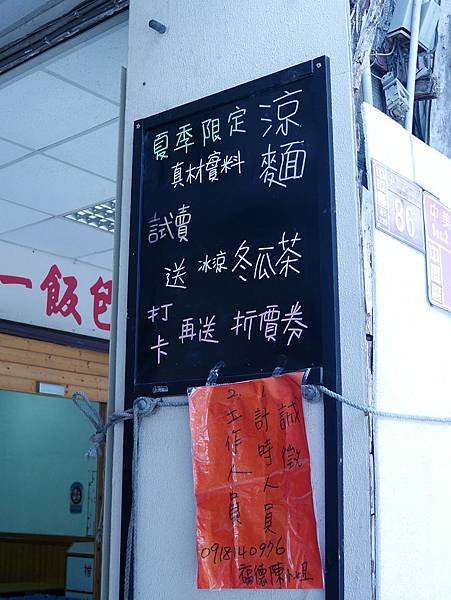 夏季限定 涼麵
真材實料
試賣
送 冰涼 冬瓜茶
打卡 再送 折價券
誠徵
1.計時人員
2.工作人員
0918140976
福德陳小姐
一飯包
86
中美